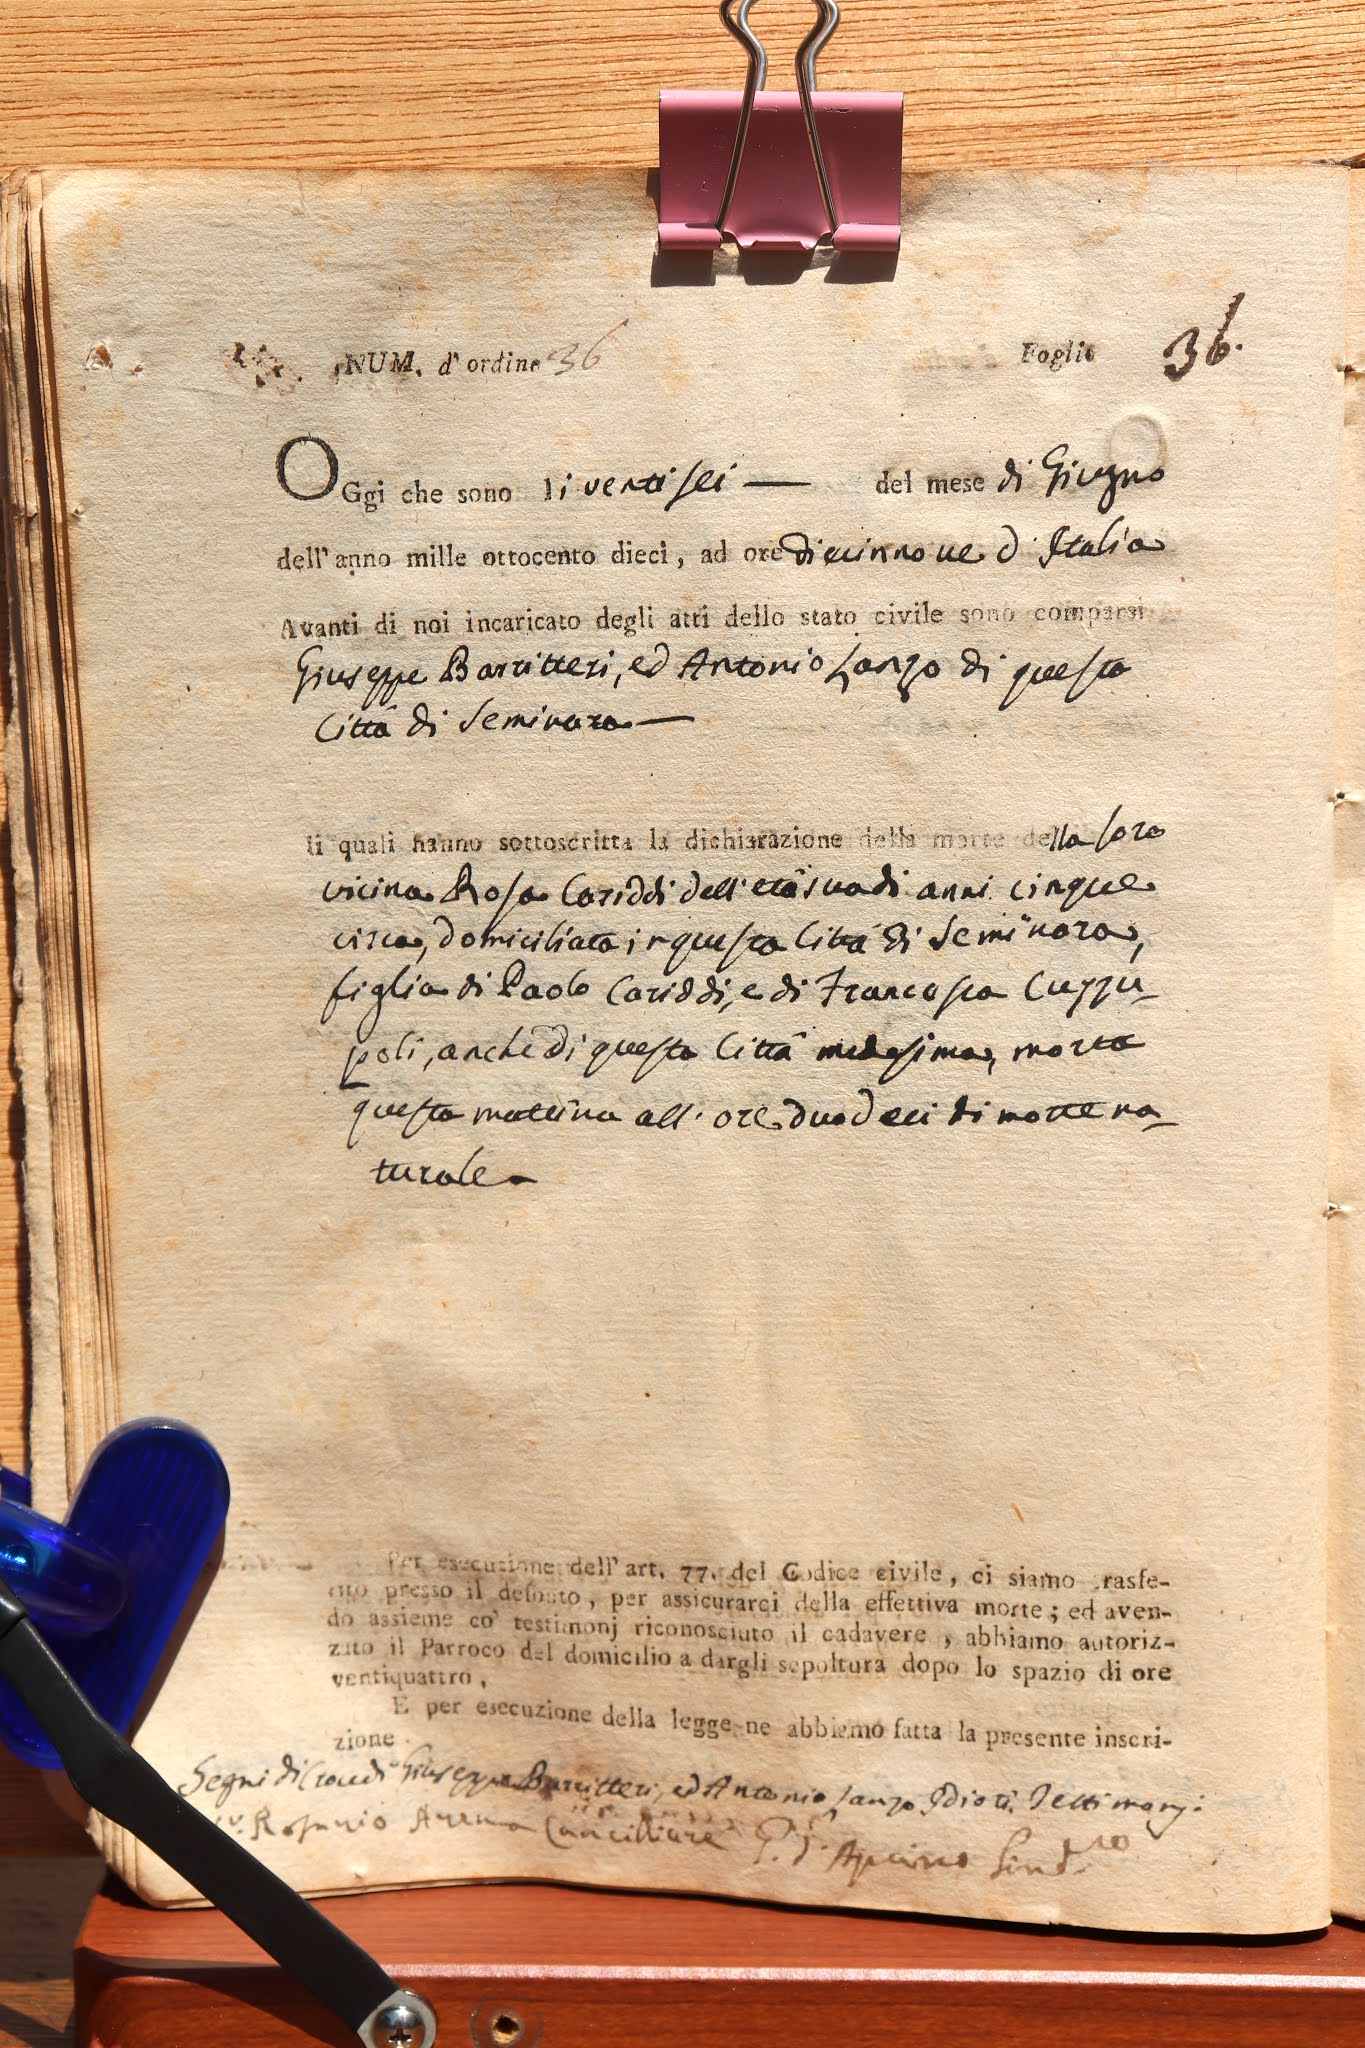 NUM. d' ordine 36 Foglio 36.
OGgi che sono li venti sei — del mese di Giugno
dell' anno mille ottocento dieci, ad ore diecinnove d' Italia
Avanti di noi incaricato degli atti dello stato civile sono comparsi
Giuseppe Barritteri, ed Antonio Lanzo di questa
Città di Seminara —
li quali hanno sottoscritta la dichiarazione della morte della loro
vicina Rosa Cariddi dell' età sua di anni cinque
circa, domiciliata in questa Città di Seminara,
figlia di Paolo Cariddi, e di Francesca Cuzzu-
poli, anche di questa Città medesima, morta
questa mattina all' ore duodeci di morte na-
turale
Per esecuzione dell' art. 77. del Codice civile, ci siamo trasfe-
rito presso il defonto, per assicurarci della effettiva morte; ed aven-
do assieme co' testimonj riconosciuto il cadavere, abbiamo autoriz-
zato il Parroco del domicilio a dargli sepoltura dopo lo spazio di ore
ventiquattro,
E per esecuzione della legge ne abbiamo fatta la presente inscri-
zione.
Segni di Croce di Giuseppe Barritteri, ed Antonio Lanzo Idioti Testimonj.
Rosario Arena Cancelliere Sind.co